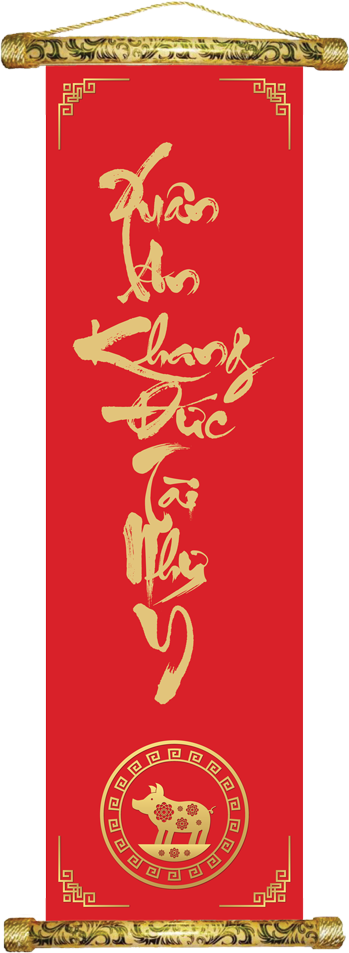 Xuân
An
Khang
Đức
Tài
Như
Ý